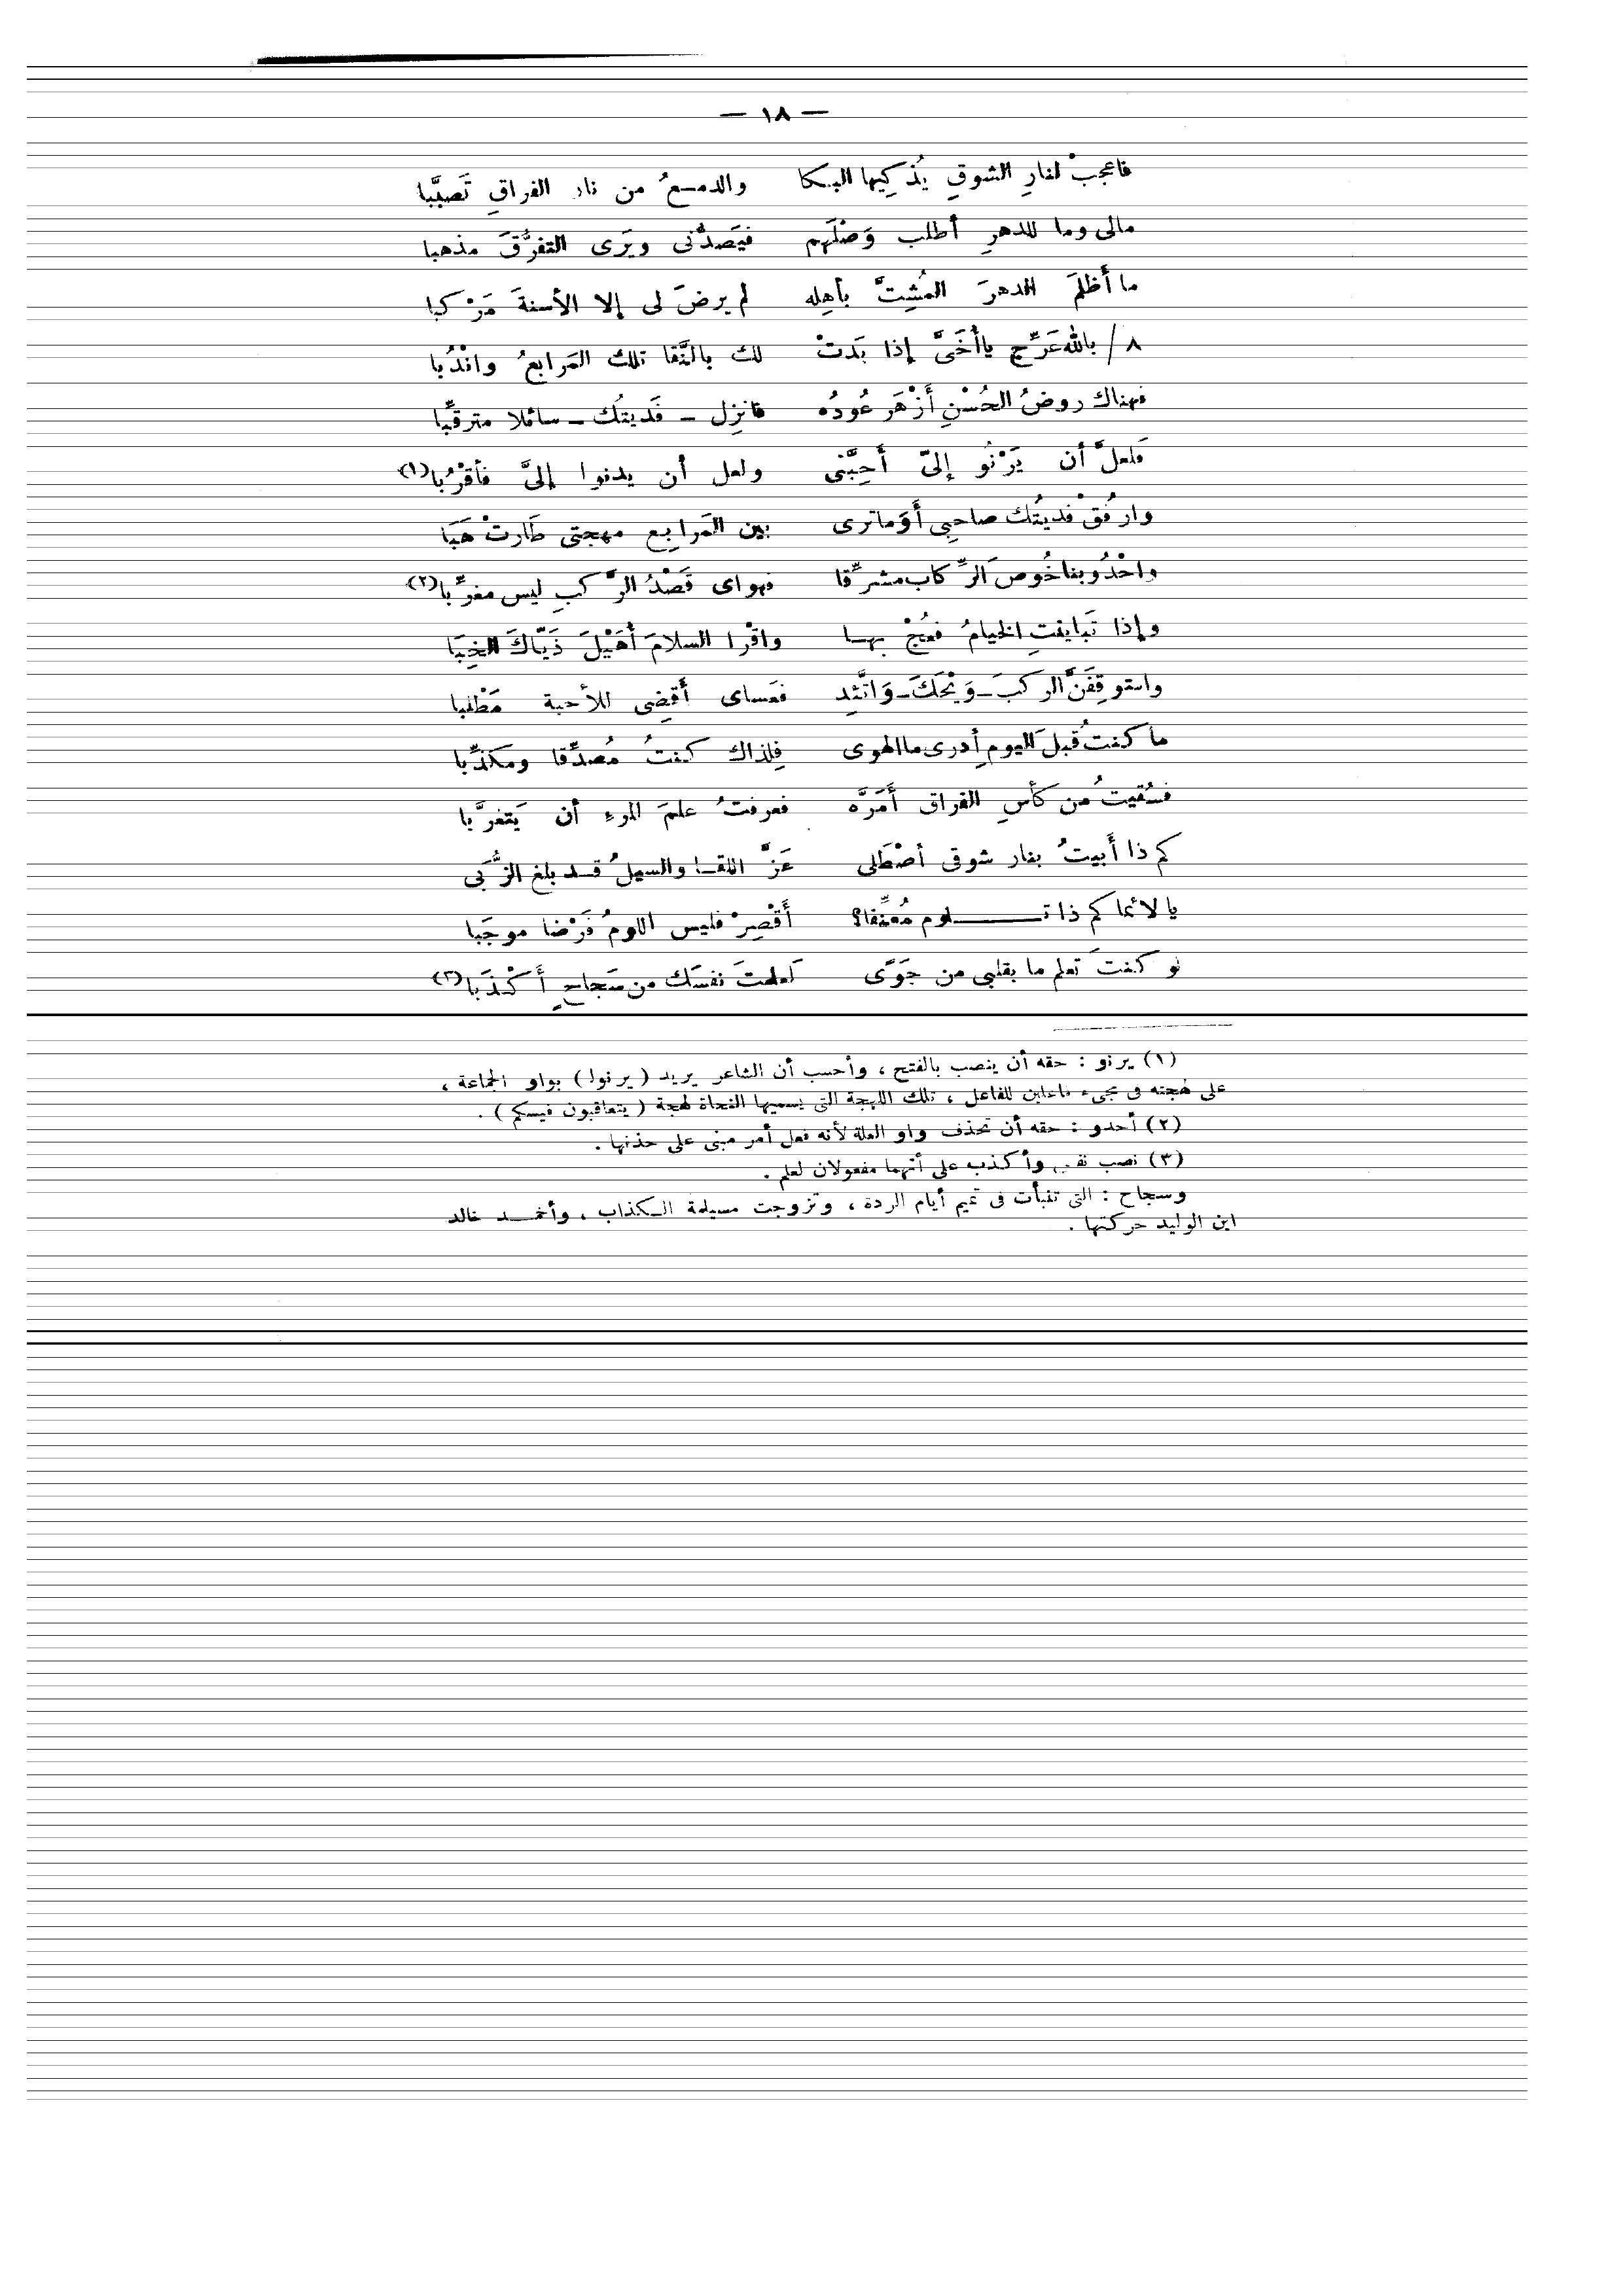 — ١٨ —
فاعجبْ لنارِ الشوقِ يُذكِيها البكا والدمعُ من نار الفراقِ تَصبَّبا
مالى وما للدهرِ أطلب وَصْلَهم فيَصدُّنى ويَرى التفرُّقَ مذهبا
ما أَظلمَ الدهرَ المُشِتَّ بأهِله لم يرضَ لى إلا الأسنةَ مَرْكبا
٨/ بالله عَرِّج ياأُخَىَّ إذا بَدَتْ لك بالنَّقا تلك المَرابعُ وانْدُبا
فهناك روضُ الحُسْنِ أَزْهَر عُودُه فانزِل – فَديتُك – سائلا مترقِّبا
فلعلَّ أن يَرْنُو إلىّ أَحِبَّتى ولعل أن يدنوا إلىَّ فأقرُبا(١)
وارفُقْ فديتُك صاحبِى أَوَماترى بين المَرابِع مهجتى طَارتْ هَبَا
واحْدُو بنا خُوصَ الرِّكاب مشرِّقا فهواى قَصْدُ الرَّكبِ ليس مغرِّبا(٢)
وإذا تَباينتِ الخيامُ فعُجْ بهـا واقْرا السلامَ أُهَيْلَ ذَيّاكَ الخِبَا
واستوقِفَنَّ الركبَ – وَيْحَكَ – وَاتَّئِد فعَساى أَقضِى للأحبة مَطْلبا
ما كنتُ قبلَ اليومِ أدرى ما الهوى فلِذاك كنتُ مُصدِّقا ومكذِّبا
فسُقيتُ من كأسِ الفراق أَمَرَّه فعرفتُ علمَ المرء أن يَتغرَّبا
كم ذا أَبيتُ بنار شوقى أصْطَلى عَزَّ اللقـا والسيلُ قـد بلغ الزُّبَى
يا لائما كم ذا تـــلوم مُعنِّفا؟ أَقْصِرْ فليس اللومُ فَرْضا موجَبا
لو كنتَ تعلم ما بقلبى من جَوًى لَعلمتَ نفسَك من سَجاحٍ أَكْذَبا(٣)
(١) يرنو : حقه أن ينصب بالفتح ، وأحسب أن الشاعر يريد ( يرنوا ) بواو الجماعة ،
على لهجته فى مجىء فاعلين للفاعل ، تلك اللهجة التى يسميها النحاة لهجة ( يتعاقبون فيكم ) .
(٢) أحدو : حقه أن تحذف واو العلة لأنه فعل أمر مبنى على حذفها .
(٣) نصب نفس وأكذب على أنهما مفعولان لعلم .
وسجاح : التى تنبأت فى تميم أيام الردة ، وتزوجت مسيلمة الـكذاب ، وأخمـــد خالد
ابن الوليد حركتها .